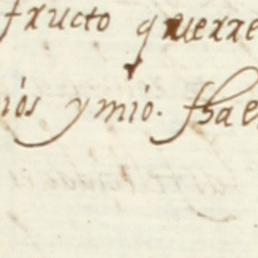 fructo querre
iós y mio. fha e